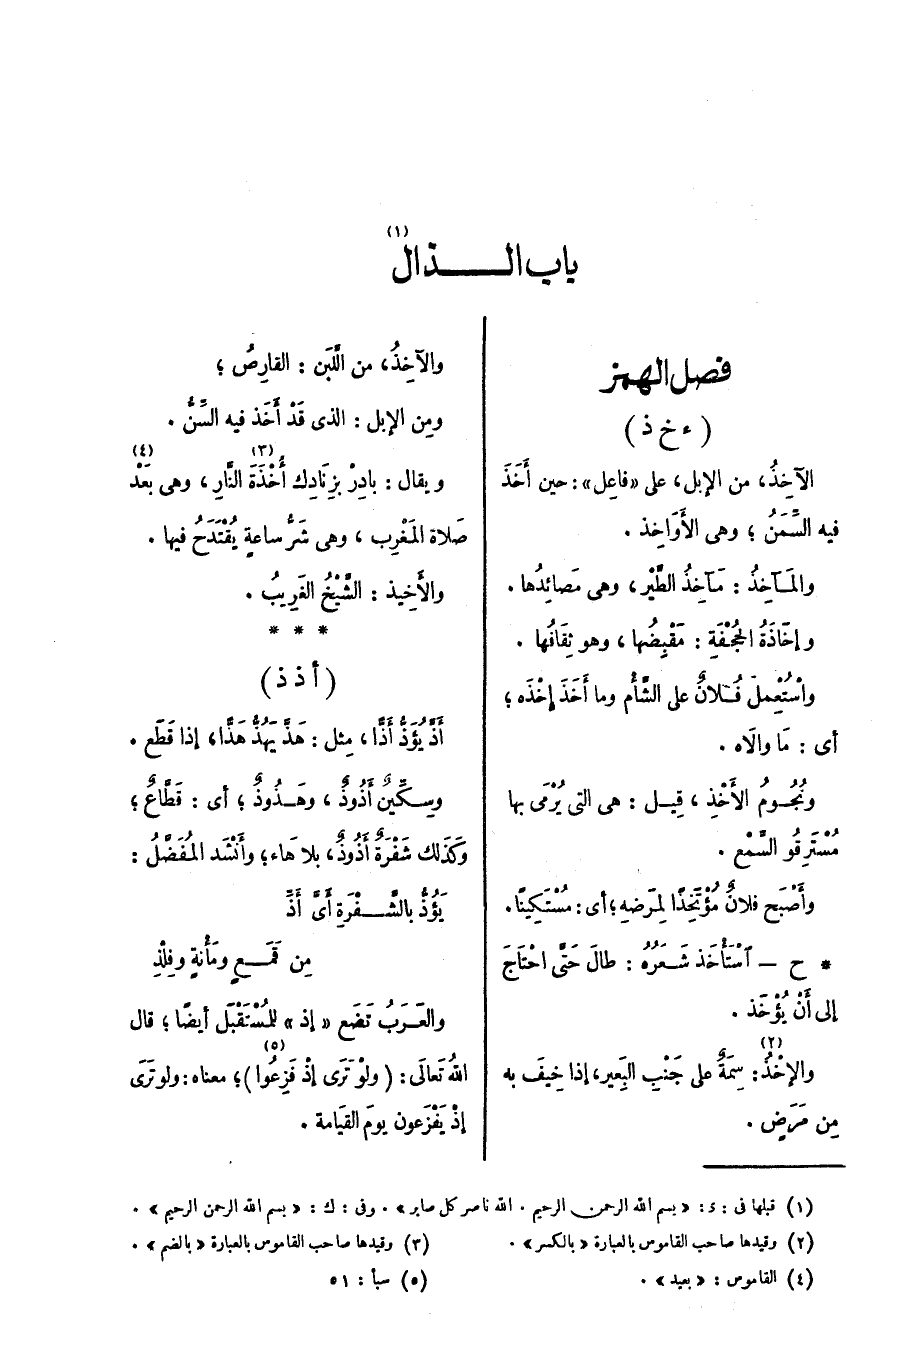 باب الـــذال (١)
فصل الهمز
( ء خ ذ )
الآخِذُ، من الإبل، على «فاعل»: حين أَخَذَ
فيه السِّمَنُ ؛ وهى الأَوَاخِذ .
والمَـآخِذُ : مَـآخِذُ الطَّيْر، وهى مَصَائِدُها .
وإخَاذَةُ الحُجْفَةِ : مَقْبِضُها ، وهو ثِقَافُها .
واسْتُعْمِلَ فُـلانٌ على الشَّأْم وما أَخَذَ إِخْذَه ؛
أى : مَا وَالَاه .
ونُجُـومُ الأَخْذِ ، قِيـل : هى التى يُرْمَى بها
مُسْتَرِقُو السَّمْع .
وأَصْبَح فلانٌ مُؤْتَخِذًا لِمَرَضِه ؛ أى : مُسْتَكِينًا .
* ح — اسْتَأْخَذ شَـعَرُه : طالَ حَتَّى احْتَاجَ
إلى أَنْ يُؤْخَذ .
والإخْذُ (٢) : سِمَةٌ على جَنْبِ البَعِير، إذا خِيفَ به
مِن مَرَضٍ .
والآخِذُ، من اللَّبَن : القارِصُ ؛
ومِن الإبل : الذى قَدْ أَخَذ فيه السِّنُّ .
ويقال : بادِرْ بِزِنَادِك أُخْذَةَ (٣) النَّارِ ، وهى بَعْدَ (٤)
صَلاة المَغْرِب ، وهى شَرُّ ساعةٍ يُقْتَدَحُ فيها .
والأَخِيذ : الشَّيْخُ الغَرِيبُ .
* * *
( أ ذ ذ )
أَذَّ يُؤَذُّ أَذًّا ، مِثل : هَذَّ يَهُذُّ هَذًّا ، إذا قَطَع .
وسِـكِّينٌ أَذُوذٌ ، وهَـذُوذٌ ؛ أى : قَطَّاعٌ ؛
وكَذَلك شَفْرَةٌ أَذُوذٌ ، بلا هَاء ؛ وأَنْشَد المُفَضَّلُ :
يَؤُذُّ بالشَّـفْرَةِ أَىَّ أَذِّ
مِن قَمَـعٍ ومَأْنَةٍ وفِلْذِ
والعَـرَبُ تَضَع « إذ » للمُسْتَقْبَل أيضًا ؛ قال
اللهُ تَعالَى : ( ولَوْ تَرَى إذْ فَزِعُوا ) (٥) ؛ معناه : ولو تَرَى
إذْ يَفْزَعون يومَ القِيَامة .
(١) قبلها فى : s : « بسم الله الرحمن الرحيم . الله ناصر كل صابر » . وفى : ك : « بسم الله الرحمن الرحيم » .
(٢) وقيدها صاحب القاموس بالعبارة « بالكسر » . (٣) وقيدها صاحب القاموس بالعبارة « بالضم » .
(٤) القاموس : « بعيد » . (٥) سبأ : ٥١